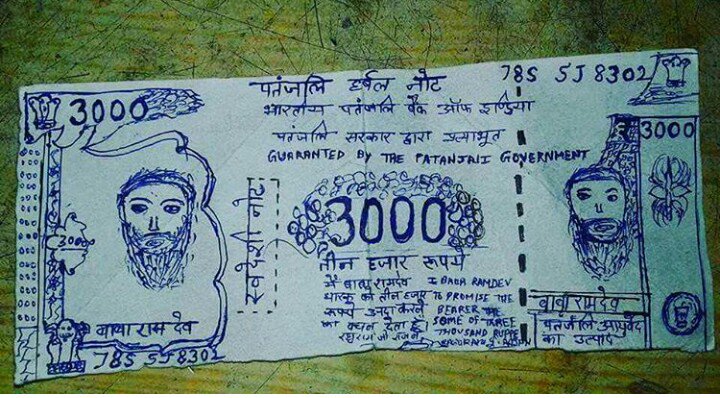 3000
पतंजलि हर्बल नोट
785 5J 8302
भारतीय पतंजलि बैंक ऑफ इण्डिया
पतंजलि सरकार द्वारा प्रत्याभूत
GUARANTED BY THE PATANJALI GOVERNMENT
3000
3000
स्वदेशी नोट
3000
तीन हजार रूपये
मैं बाबा रामदेव
धारक को तीन हजार
रूपये अदा करने
का वचन देता हूँ।
I BABA RAMDEV
TO PROMISE THE
BEARER THE
SOME OF THREE
THOUSAND RUPPE
बाबा राम देव
785 5J 8302
बाबा राम देव
पतंजलि आयुर्वेद
का उत्पाद